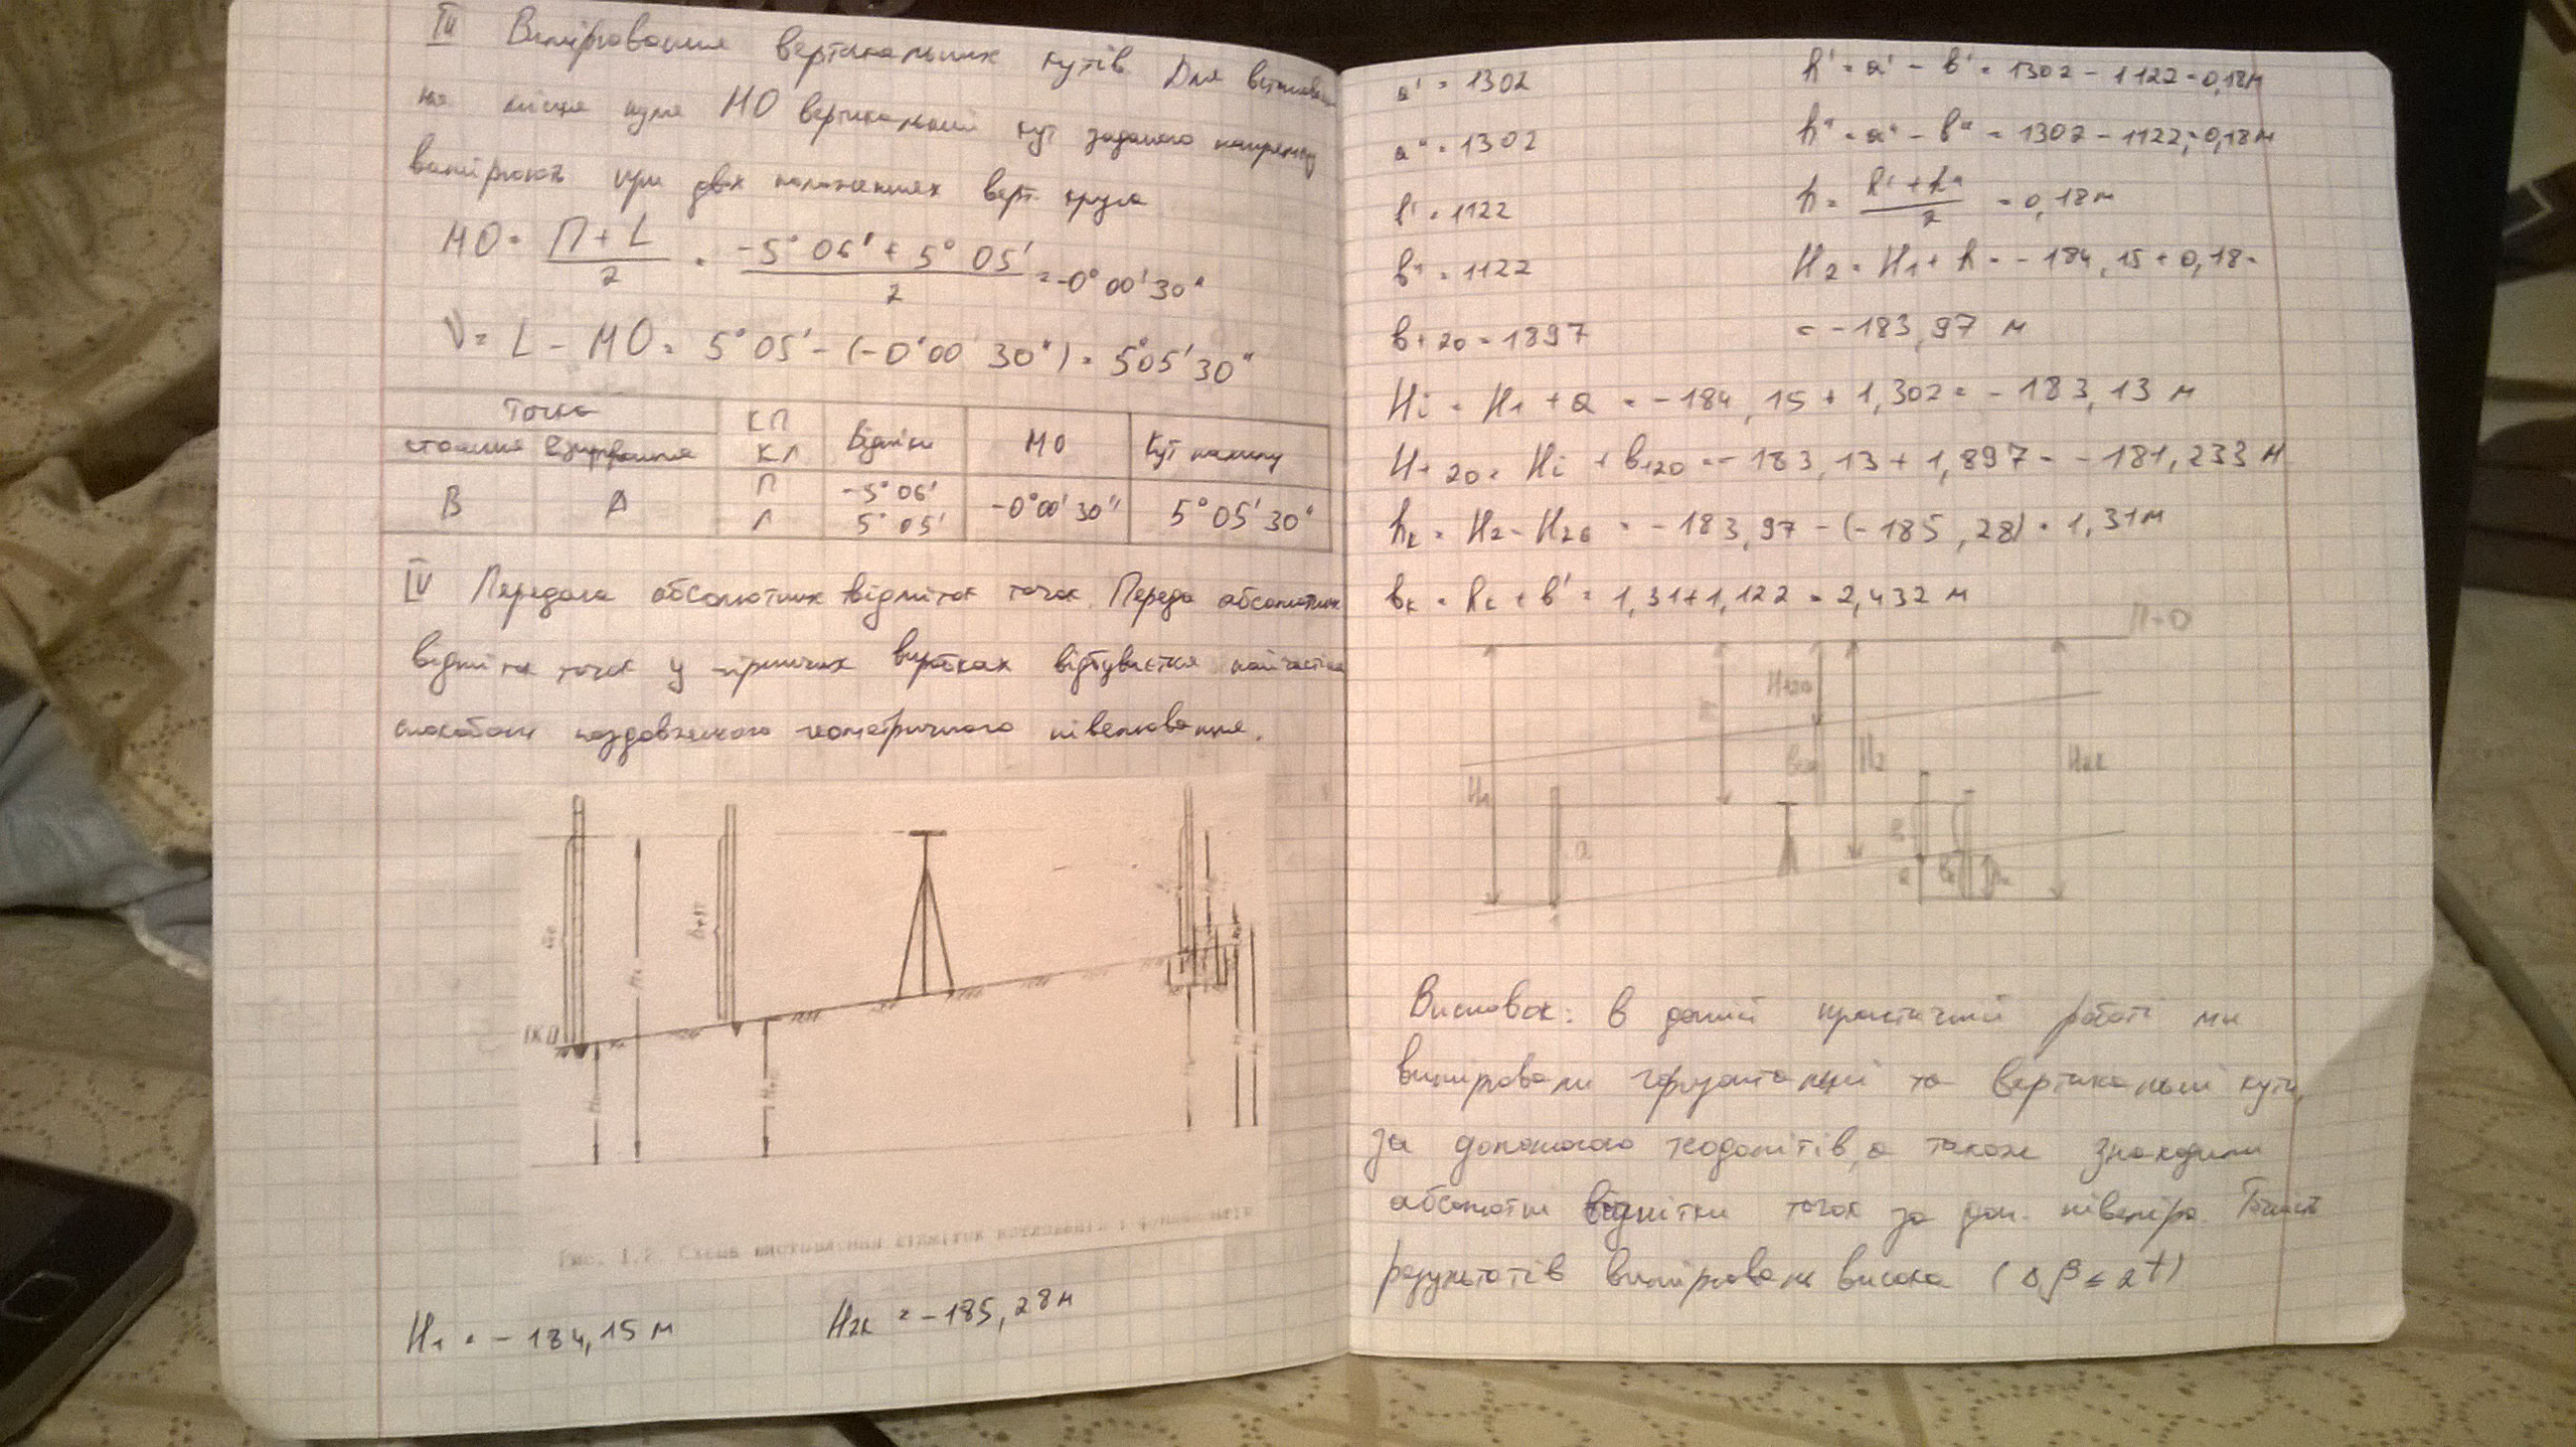 III Вимірювання вертикальних кутів Для встановлен
ня місця нуля МО вертикальний кут заданого напрямку
вимірюють при двох положеннях верт. круга
МО = П + L / 2 = -5° 06' + 5° 05' / 2 = -0° 00' 30"
V = L - МО = 5° 05' - (-0° 00' 30") = 5° 05' 30"
Точка КП КЛ Відліки МО Кут нахилу
стояння візирування
В А П -5° 06' -0° 00' 30" 5° 05' 30"
Л 5° 05'
IV Передача абсолютних відміток точок. Переда абсолютних
відміток точок у гірничих виробках відбувається найчастіше
способом поздовжнього геометричного нівелювання.
Рис. 1.2. Схема
H₁ = -184,15 м H₂ₖ = -185,28 м
a' = 1302 h' = a' - b' = 1302 - 1122 = 0,18 м
a" = 1302 h" = a" - b" = 1302 - 1122 = 0,18 м
b' = 1122 h = h' + h" / 2 = 0,18 м
b" = 1122 H₂ = H₁ + h = -184,15 + 0,18 =
b+20 = 1897 = -183,97 м
Hi = H₁ + a = -184,15 + 1,302 = -183,13 м
H+20 = Hi + b+20 = -183,13 + 1,897 = -181,233 м
hₖ = H₂ - H₂ₖ = -183,97 - (-185,28) = 1,31 м
bₖ = hₖ + b' = 1,31 + 1,122 = 2,432 м
H₁ H₂ a
Висновок: В даній практичній роботі ми
вимірювали горизонтальні та вертикальні кути,
за допомогою теодолітів, а також знаходили
абсолютні відмітки точок за доп. нівеліра. Точність
результатів вимірювань висока (Δβ ≤ 2t)